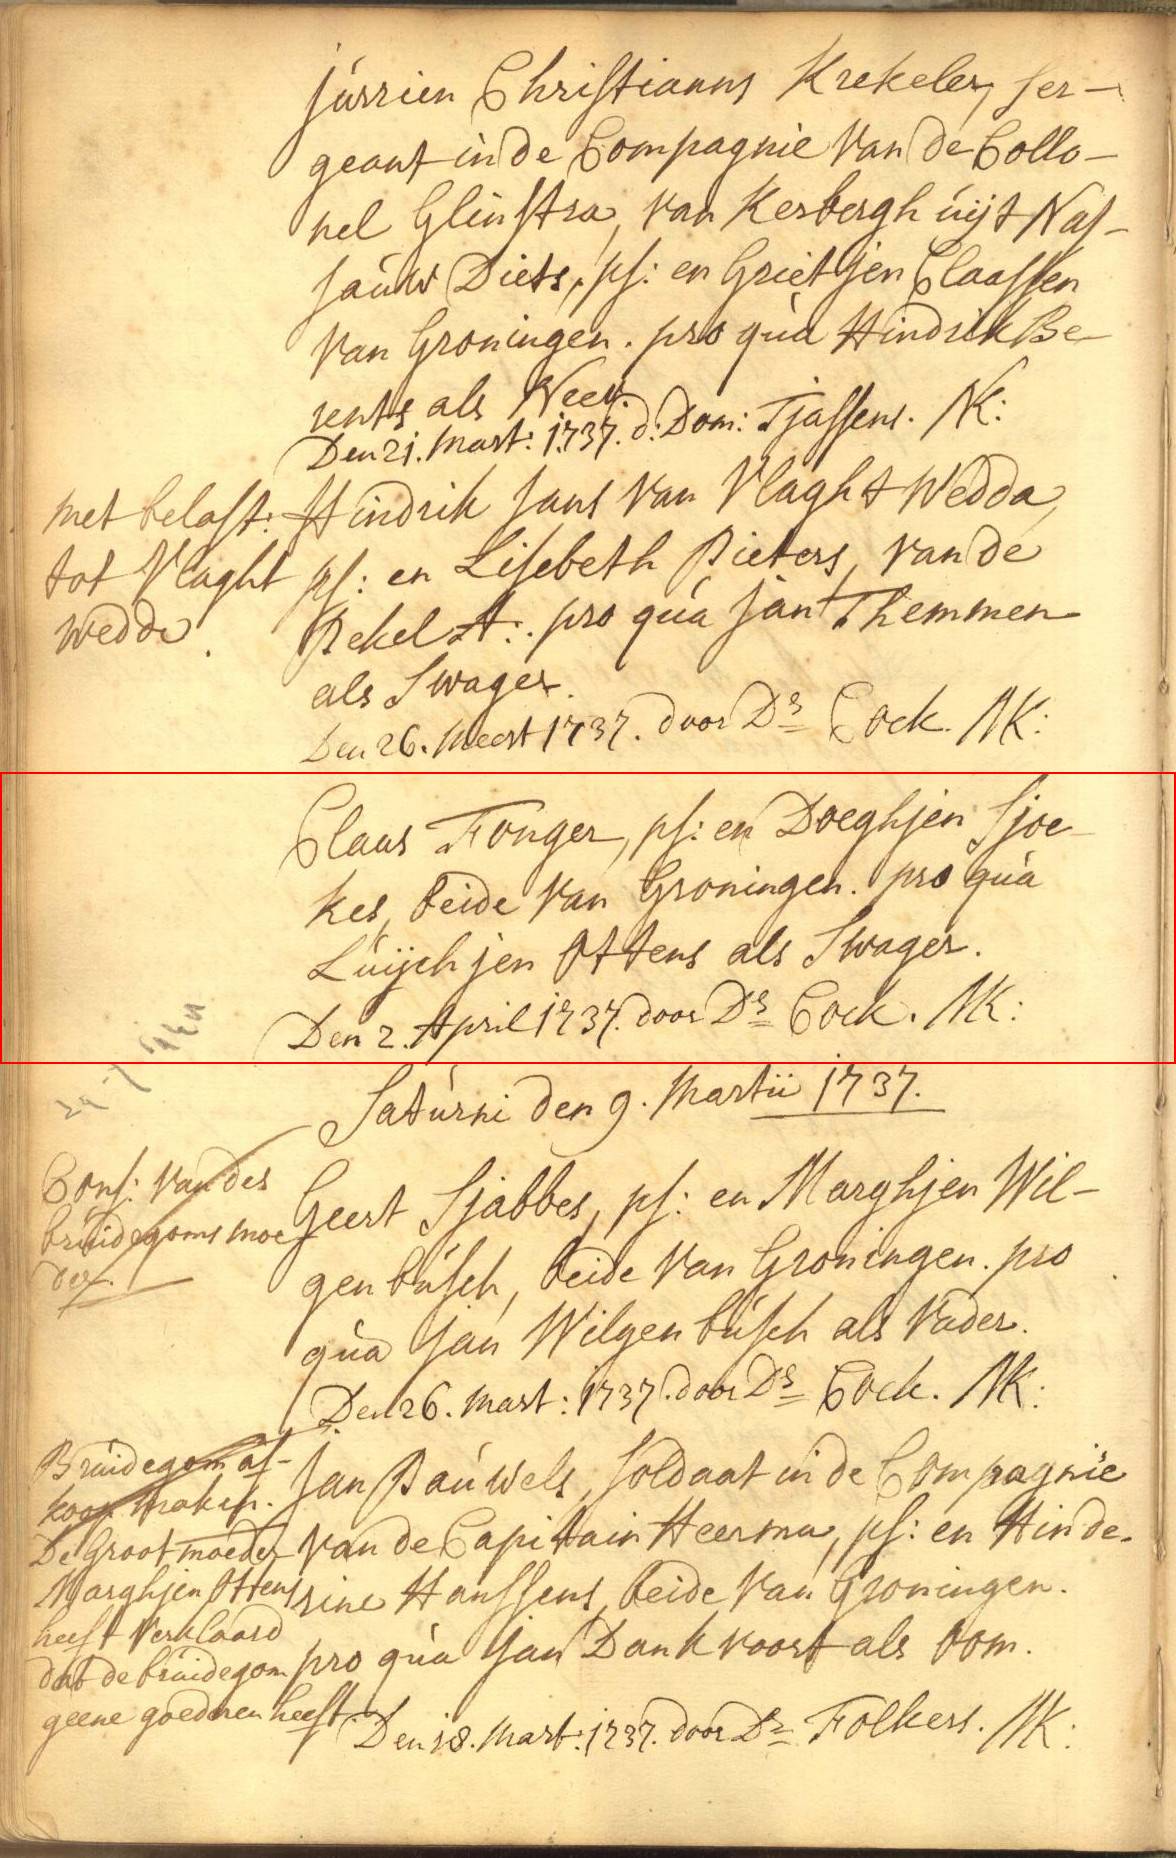 Jurrien Christianus Krekeler, ser-
geant in de Compagnie van de Collo-
nel Glinstra, van Kerbergh uijt Nas-
sauw Diets, ps: en Grietjen Claassen
van Groningen. pro qua Hindrik Be-
rents als Neef.
Den 21. Mart: 1737. d: Dom: Tjassens. NK:
met belast:
tot Vlaght
wedde.
Hindrik Jans van Vlaghtwedda,
ps: en Lisebeth Pieters, van de
Pekel A:. pro qua Jan Themmen
als Swager.
Den 26. Meert 1737. door Ds Cock. NK:
Claas Fonger, ps: en Doeghjen Sjoe-
kes, beide van Groningen. pro qua
Luijchjen Ottens als Swager.
Den 2. April 1737. door Ds Cock. NK:
Saturni den 9. Martii 1737.
Cons: van des
bruidegoms moe
der.
Geert Sjabbes, ps: en Marghjen Wil-
genbusch, beide van Groningen. pro
qua Jan Wilgenbusch als Vader.
Den 26. Mart: 1737. door Ds Cock. NK:
Bruidegom af-
koop maken.
De Grootmoeder
Marghjen Ottens
heeft verklaard
dat de bruidegom
geene goederen heeft.
Jan Pauwels, soldaat in de Compagnie
van de Capitain Heerma, ps: en Hinde-
rine Hanssens, beide van Groningen.
pro qua Jan Dankvoort als Oom.
Den 18. Mart: 1737. door Ds Folkers. NK: